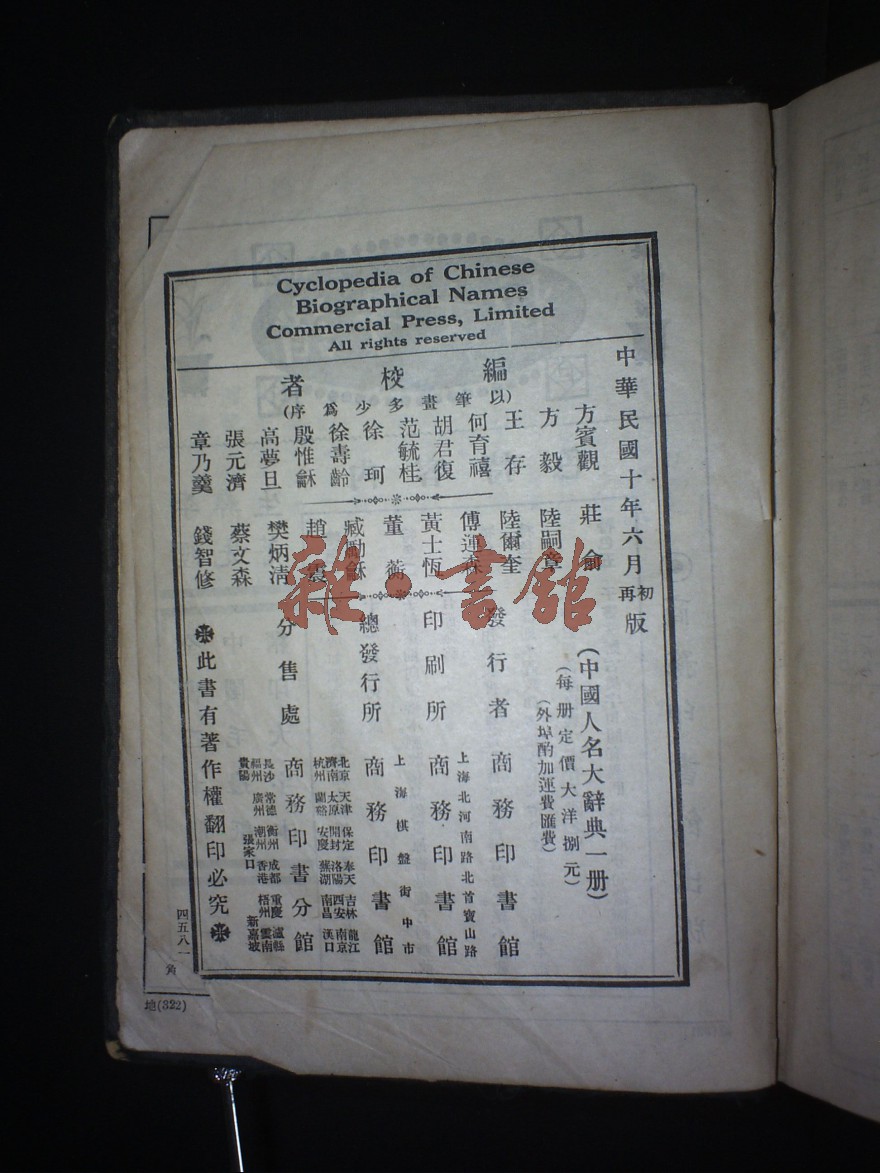 Cyclopedia of Chinese
Biographical Names
Commercial Press, Limited
All rights reserved
中華民國十年六月初再版
(中國人名大辭典一册)
(每册定價大洋捌元)
(外埠酌加運費匯費)
編校者
(以筆畫多少爲序)
方賓觀
方毅
王存
何育禧
胡君復
范毓桂
徐珂
徐壽齡
殷惟龢
高夢旦
張元濟
章乃羹
莊俞
陸嗣章
陸爾奎
傅運森
黃士恆
董
臧勵龢
趙
樊炳清
蔡文森
錢智修
發行者 商務印書館
上海北河南路北首寶山路
印刷所 商務印書館
上海棋盤街中市
總發行所 商務印書館
北京 天津 保定 奉天 吉林 龍江
濟南 太原 開封 洛陽 西安 南京
杭州 蘭谿 安慶 蕪湖 南昌 漢口
分售處 商務印書分館
長沙 常德 衡州 成都 重慶 瀘縣
福州 廣州 潮州 香港 梧州 雲南
貴陽 張家口 新嘉坡
此書有著作權翻印必究
四五八一
角
地(322)
雜·書館